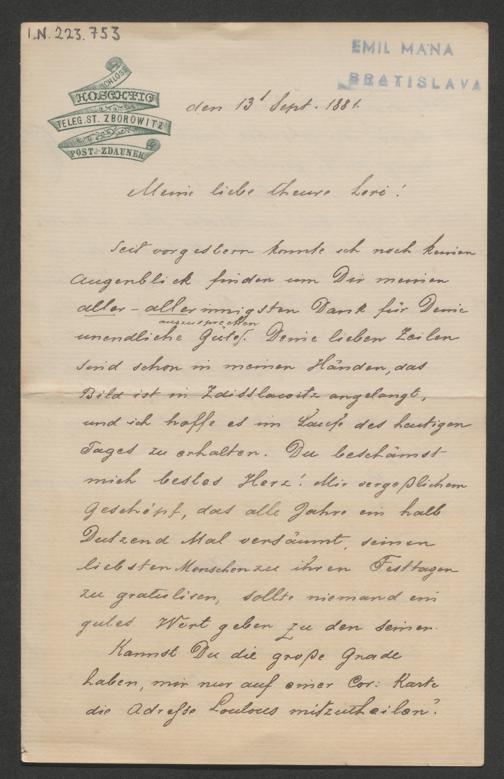 I.N. 223.753
EMIL MAŇA
BRATISLAVA
SCHLOSS
HOSCHTIC
TELEG. ST. ZBOROWITZ
POST: ZDAUNEK
den 13t Sept. 1881.
Meine liebe theure Lori!
Seit vorgestern konnte ich noch keinen
Augenblick finden um Dir meinen
aller-allerinnigsten Dank für Deine
auszusprechen
unendliche Güte. Deine lieben Zeilen
sind schon in meinen Händen, das
Bild ist in Zdisslawitz angelangt,
und ich hoffe es im Laufe des heutigen
Tages zu erhalten. Du beschämst
mich bestes Herz! Mir vergeßlichem
Geschöpf, das alle Jahre ein halb
Dutzend Mal versäumt, seinen
liebsten Menschen zu ihren Festtagen
zu gratuliren, sollte niemand ein
gutes Wort geben zu den seinen.
Kannst Du die große Gnade
haben, mir nur auf einer Cor: Karte
die Adresse Loulous mitzutheilen?